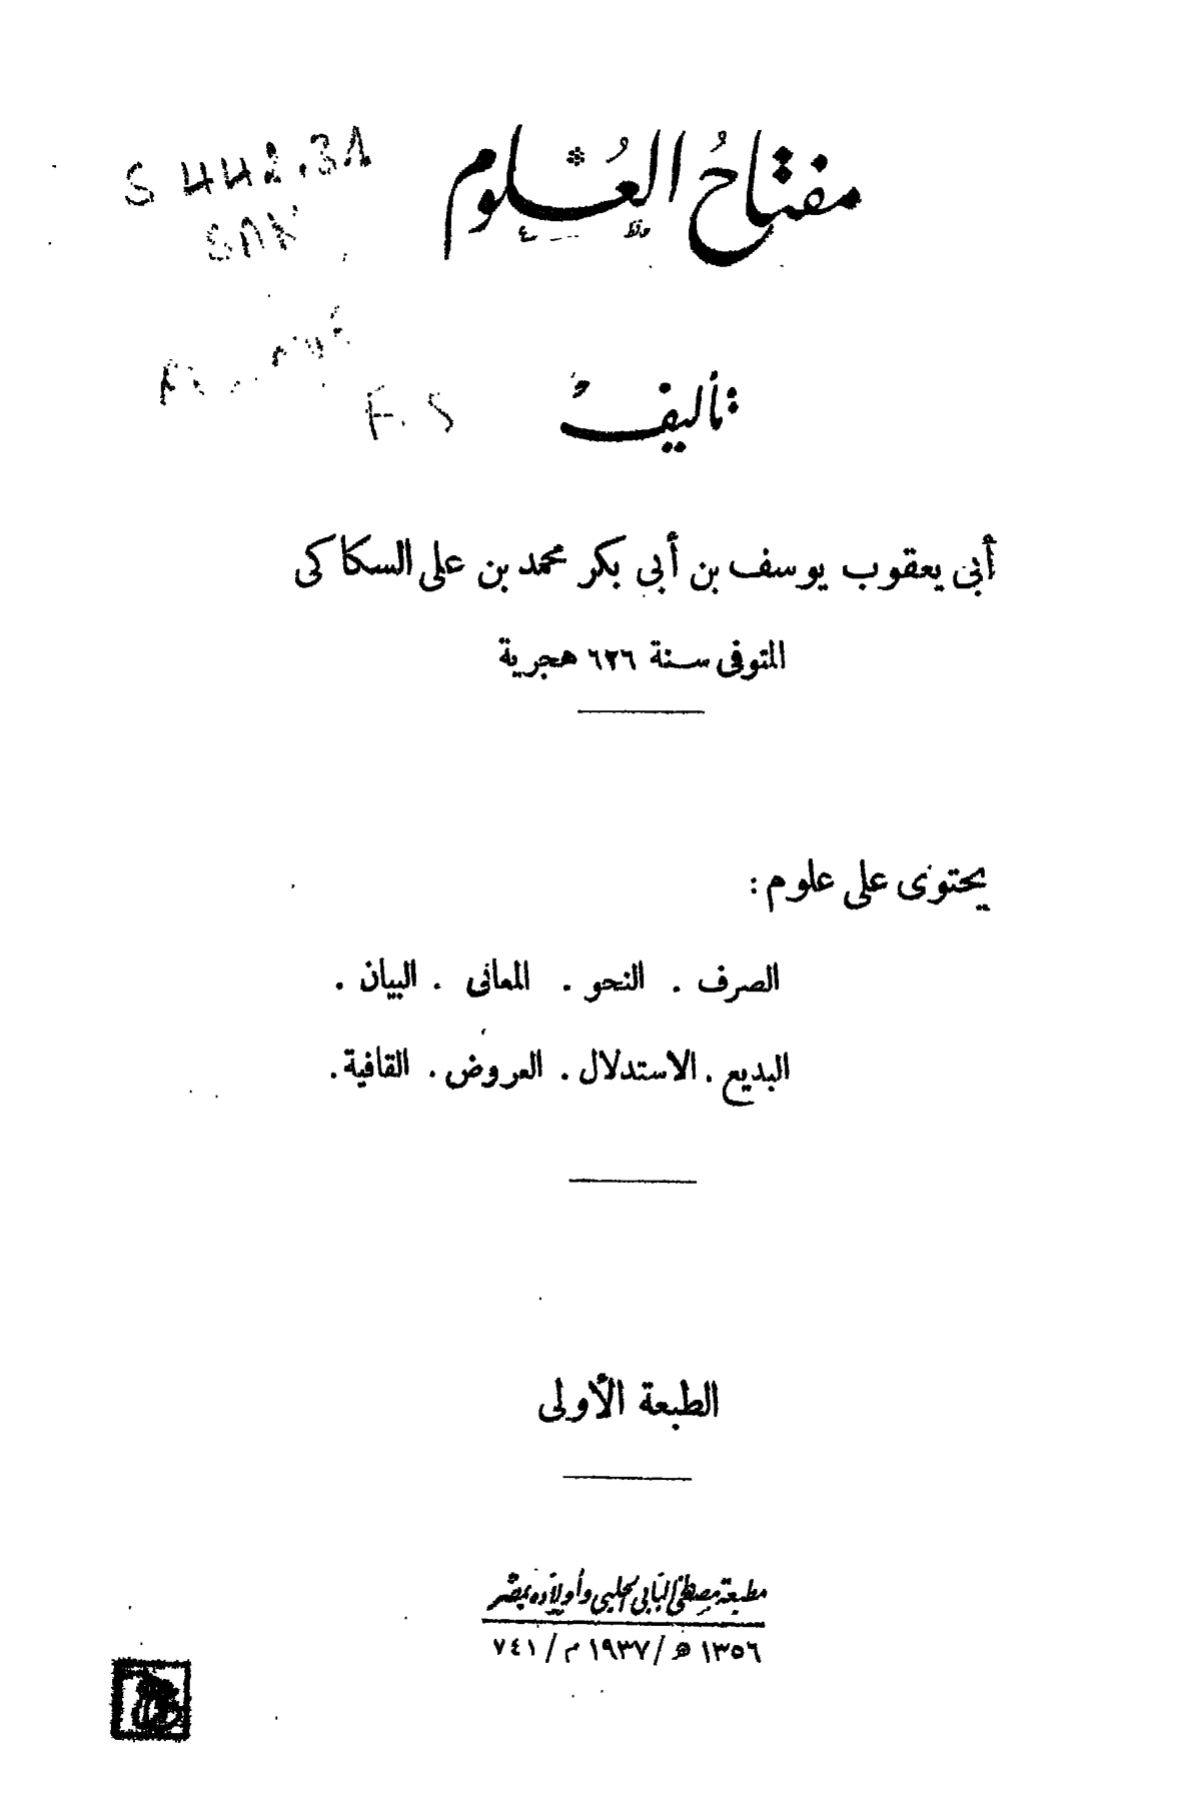 مفتاح العُلوم
S 442.31
SAK
تأليفُ
F. S
أبى يعقوب يوسف بن أبي بكر محمد بن على السكاكى
المتوفى سنة ٦٢٦ هجرية
يحتوى على علوم :
الصرف . النحو . المعانى . البيان .
البديع . الاستدلال . العروض . القافية .
الطبعة الأولى
مطبعة مصطفى البابى الحلبى وأولاده بمصر
١٣٥٦ ھ / ١٩٣٧ م / ٧٤١